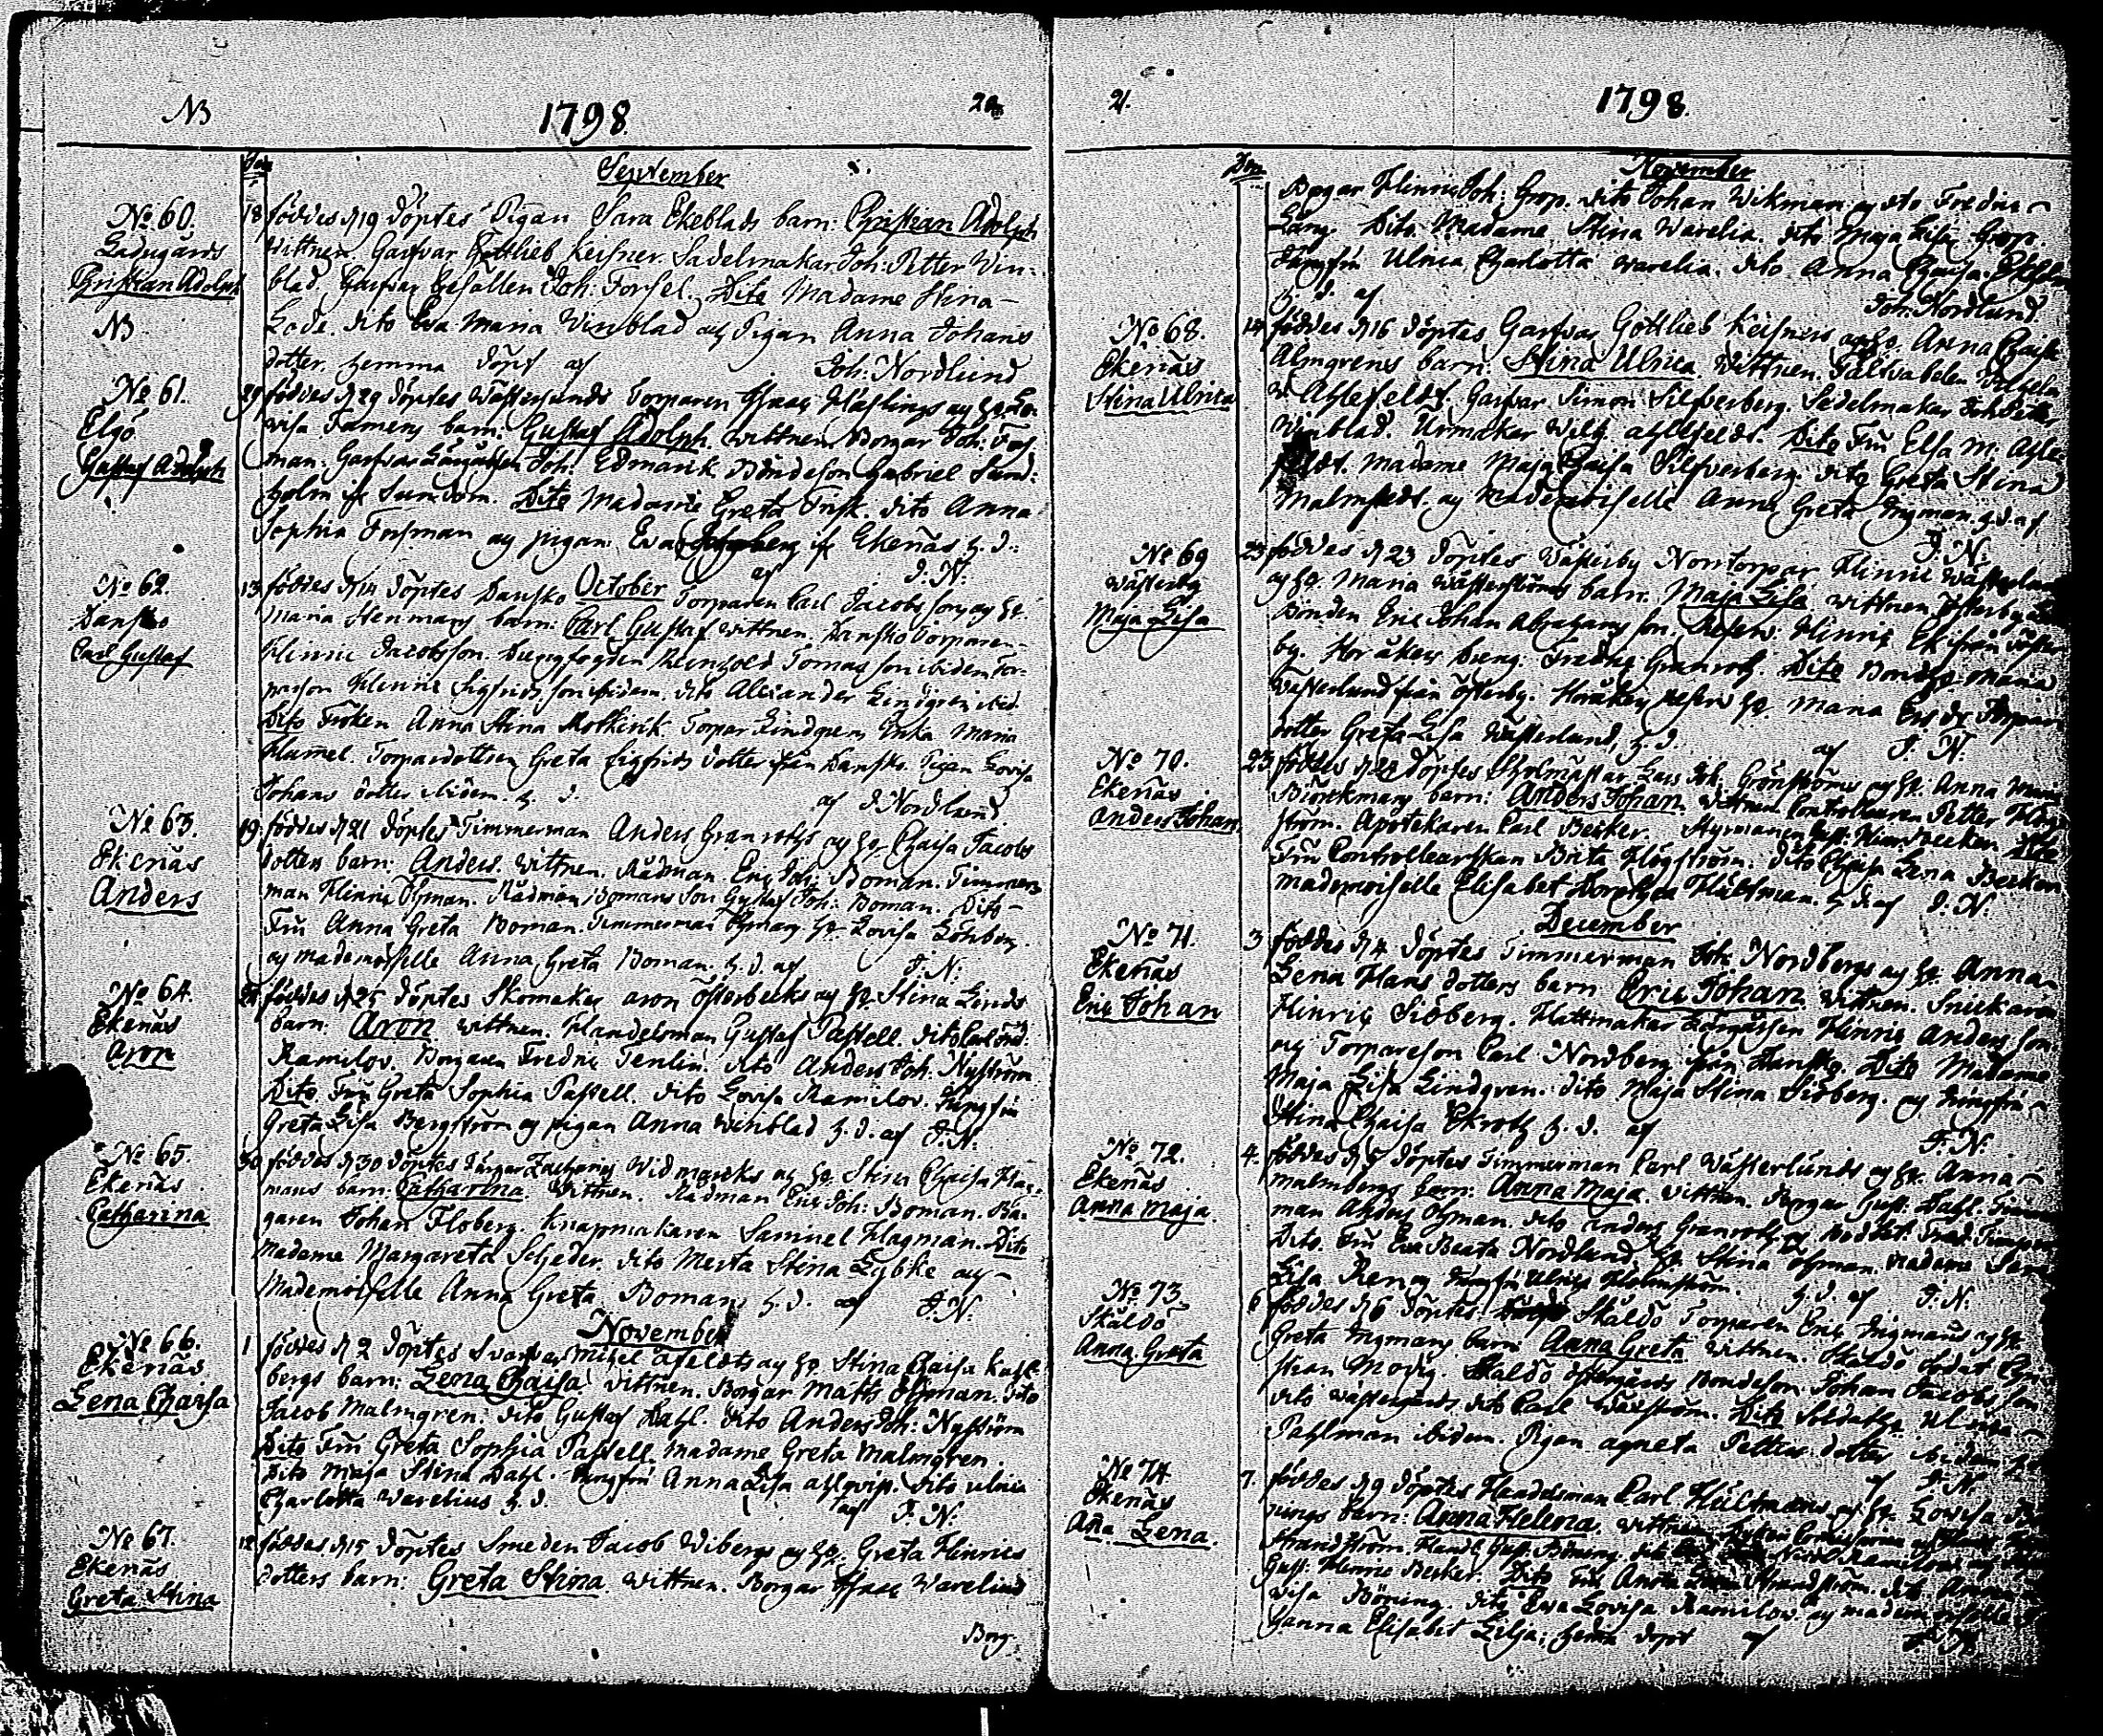 NB
1798.
20.
Dag
September
No 60.
Ladugärds
Christian Adolph
NB
18 föddes d 19 döptes Pigan Sara Ekeblads barn: Christian Adolph
Wittnen. Garfvar Gottlieb Keisner. Sadelmakar Joh: Petter Win-
blad. Garfvar Gesällen Joh: Forsel. Dito Madame Stina
Lode. dito Eva Maria Winblad och Pigan Anna Johans
dotter. hemma döpt af Joh: Nordlund
No 61.
Elgö
Gustaf Adolph
29 föddes d 29 döptes Wästersunds Torparen Isaac Haslings og h. Lo-
visa Famens barn: Gustaf Adolph. wittnen Borgar Joh: Fors-
man. Garfvar Joh: Edmark. Bondeson Gabriel Sund-
holm if Sundom. Dito Madame Greta Frisk. dito Anna
Sophia Forsman og pigan Eva if Ekenäs h. d.
af J. N.
October
No 62.
Dansko
Carl Gustaf
13 föddes d 14 döptes Dansko Torparen Carl Jacobsson og h.
Maria Stenmans barn: Carl Gustaf wittnen. Dansko Torparen
Hinric Jacobsson. Reinhold Tomasson ibidem Tor-
parson Hinric Sigfridsson ibidem. dito Alexander Lindgren ibid.
Dito Fröken Anna Stina Torpar Lindgrens Enka Maria
Humel. Torpardottren Greta Sigfrids dotter från Dansko. Pigan Lovisa
Johans dotter ibidem. h. d. af J Nordlund
No 63.
Ekenäs
Anders
19 föddes d 21 döptes Timmerman Anders Granroths og h. Chaisa Jacobs
dotters barn: Anders. wittnen. Rådman Eric Joh: Boman. Timmer-
man Hinric Öhman. Rådman Bomans Son Gustaf Joh: Boman. Dito
Fru Anna Greta Boman. Timmerman Öhmans h. Lovisa
og mademoiselle Anna Greta Boman. h. d. af J. N.
No 64.
Ekenäs
Aron
föddes d 25 döptes Skomakar Aron Österbecks og h. Stina Linds
barn: Aron. wittnen. Handelsman Gustaf Passell. dito Carl
Ramilov. Borgaren Fredric Tenlin. dito Anders Joh: Nyström
Dito Fru Greta Sophia Passell. dito Lovisa Ramilov. Jungfru
Greta Lisa Bergström og pigan Anna Winblad h. d. af J. N.
No 65.
Ekenäs
Catharina
30 föddes d 30 döptes Zacharias Widmarcks og h. Stina Chaisa Hag-
mans barn: Catharina. wittnen. Rådman Eric Joh: Boman. Bor-
garen Johan Floberg. Knapmakaren Samuel Hagman. Dito
Madame Margareta Scheder. dito Merta Stina Lybke og
Mademoiselle Anna Greta Boman h. d. af J. N.
November
No 66.
Ekenäs
Lena Chaisa
1 föddes d 2 döptes Svarfvar og h. Stina Chaisa
bergs barn: Lena Chaisa. wittnen. Borgar Matts Öhman. dito
Jacob Malmgren. dito Gustaf Dahl. dito Anders Joh: Nyström
Dito Fru Greta Sophia Passell. Madame Greta Malmgren.
dito Maja Stina Dahl. Jungfru Anna Lisa Ahlqvist. dito Ulrica
Charlotta Warelius h. d. af J. N.
No 67.
Ekenäs
Greta Stina
12 föddes d 15 döptes Smeden Jacob Wibergs og h. Greta Hinrics
dotters barn: Greta Stina. wittnen. Borgar Isaac Warelius
Borg
21.
1798.
November
Borgar Hinric Joh: Grop. dito Johan Wikman og dito Fredric
Lång. Dito Madame Stina Warelia. dito Maja Lisa Grop.
Jungfru Ulrica Charlotta Warelia. dito Anna Chaisa
h. d. af Joh: Nordlund
No 68.
Ekenäs
Stina Ulrica
14 föddes d 16 döptes Garfvar Gottlieb Keisners og h. Anna Chaisa
Almgrens barn. Stina Ulrica. wittnen.
Ahlefeldt. Garfvar Simon Silfverberg. Sadelmakar Joh Petter
Winblad. Urmakar Wilh. Ahlefeldt. Dito Fru Elsa M. Ahle-
feldt. Madame Maja Chaisa Silfverberg. dito Greta Stina
Malmstedt. og Mademoiselle Anna Greta Ingman. h. d. af
J. N.
No 69
Wästerby
Maja Lisa
23 föddes d 23 döptes Wästerby Norrtorpar Hinric Wästerlunds
og h. Maria Wästerströms barn. Maja Lisa. wittnen Österby
Bonden Eric Johan Abrahamsson. Hinric Ek ifrån Öster-
by. Horåkers dreng. Fredric Granroth. Dito Bond h. Maria
Westerlund från Österby. Horåkers h. Maria
dotter Greta Lisa Wästerlund, h. d. af J. N.
No 70.
Ekenäs
Anders Johan
23 föddes d 28 döptes Skolmästar Lars Joh. Grönströms og h. Anna
Björckmans barn: Anders Johan wittnen. Controlleuren Petter Hög-
ström. Apotekaren Carl Becker. Styrmannen Gust: Hinr. Becker. Dito
Fru Controlleurskan Brita Högström. dito Chaisa Lena Becker
mademoiselle Elisabet Dorothea Hültman. h. d. af J. N.
December
No 71.
Ekenäs
Eric Johan
3 föddes d 4 döptes Timmerman Joh. Nordbergs og h. Anna
Lena Hans dotters barn Eric Johan. wittnen. Snickaren
Hinric Siöberg. Hattmakar Hinric Andersson
og Torpareson Carl Nordberg från Dansko. Dito Madame
Maja Lisa Lindgren. dito Maja Stina Siöberg. og Jungfru
Stina Chaisa Ekroth h. d. af J. N.
No 72.
Ekenäs
Anna Maja.
4. föddes d 5 döptes Timmerman Carl Wästerlunds og h. Anna
Malmbergs barn: Anna Maja. wittnen. Borgar Gust: Dahl. Timmer-
man Anders Öhman. dito Anders Granroth
Dito. Fru Eva Beata Nordlund. h. Stina Öhman. Madame
Lisa Ren og Jungfru Ulrica Holmström. h. d. af J. N.
No 73
Skåldö
Anna Greta
6 föddes d 6 döptes Skåldö Torparen Eric Ingmans og h.
Greta Ingmans barn: Anna Greta. wittnen. Skåldö Soldat Chri-
stian Modig. Skåldö Östergårds Bondeson Johan Jacobsson
dito Wästergårds dito Carl Wikström. Dito Soldat h. Ulrica
Pahlman ibidem. Pigan Agneta Petters dotter ibidem
af J. N.
No 74
Ekenäs
Aña Lena.
7. föddes d 9 döptes Handelsman Carl Hültmans og h. Lovisa
barn: Anna Helena. wittnen
Strandström. Handl. Gust: Böning.
Gust: Hinric Becker. Dito Fru Anna Strandström. dito
visa Böning. dito Eva Lovisa Ramilov og mademoiselle
hanna Elisabet Lilja; hema döpt af